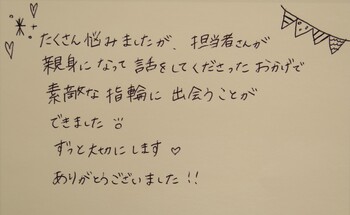 たくさん悩みましたが、担当者さんが
親身になって話をしてくださったおかげで
素敵な指輪に出会うことが
できました
ずっと大切にします♡
ありがとうございました!!